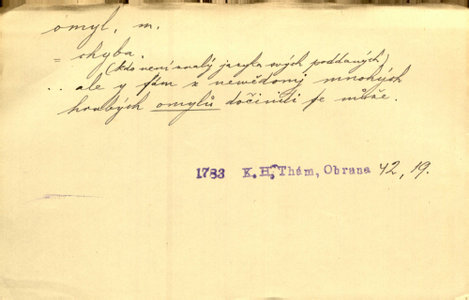 omyl, m.
= chyba.
(kdo není znalý jazyka svých poddaných)
.. ale y sám z newědomj mnohých
hrubých omylů dočiniti se může.
1783 K. H. Thám, Obrana 42, 19.